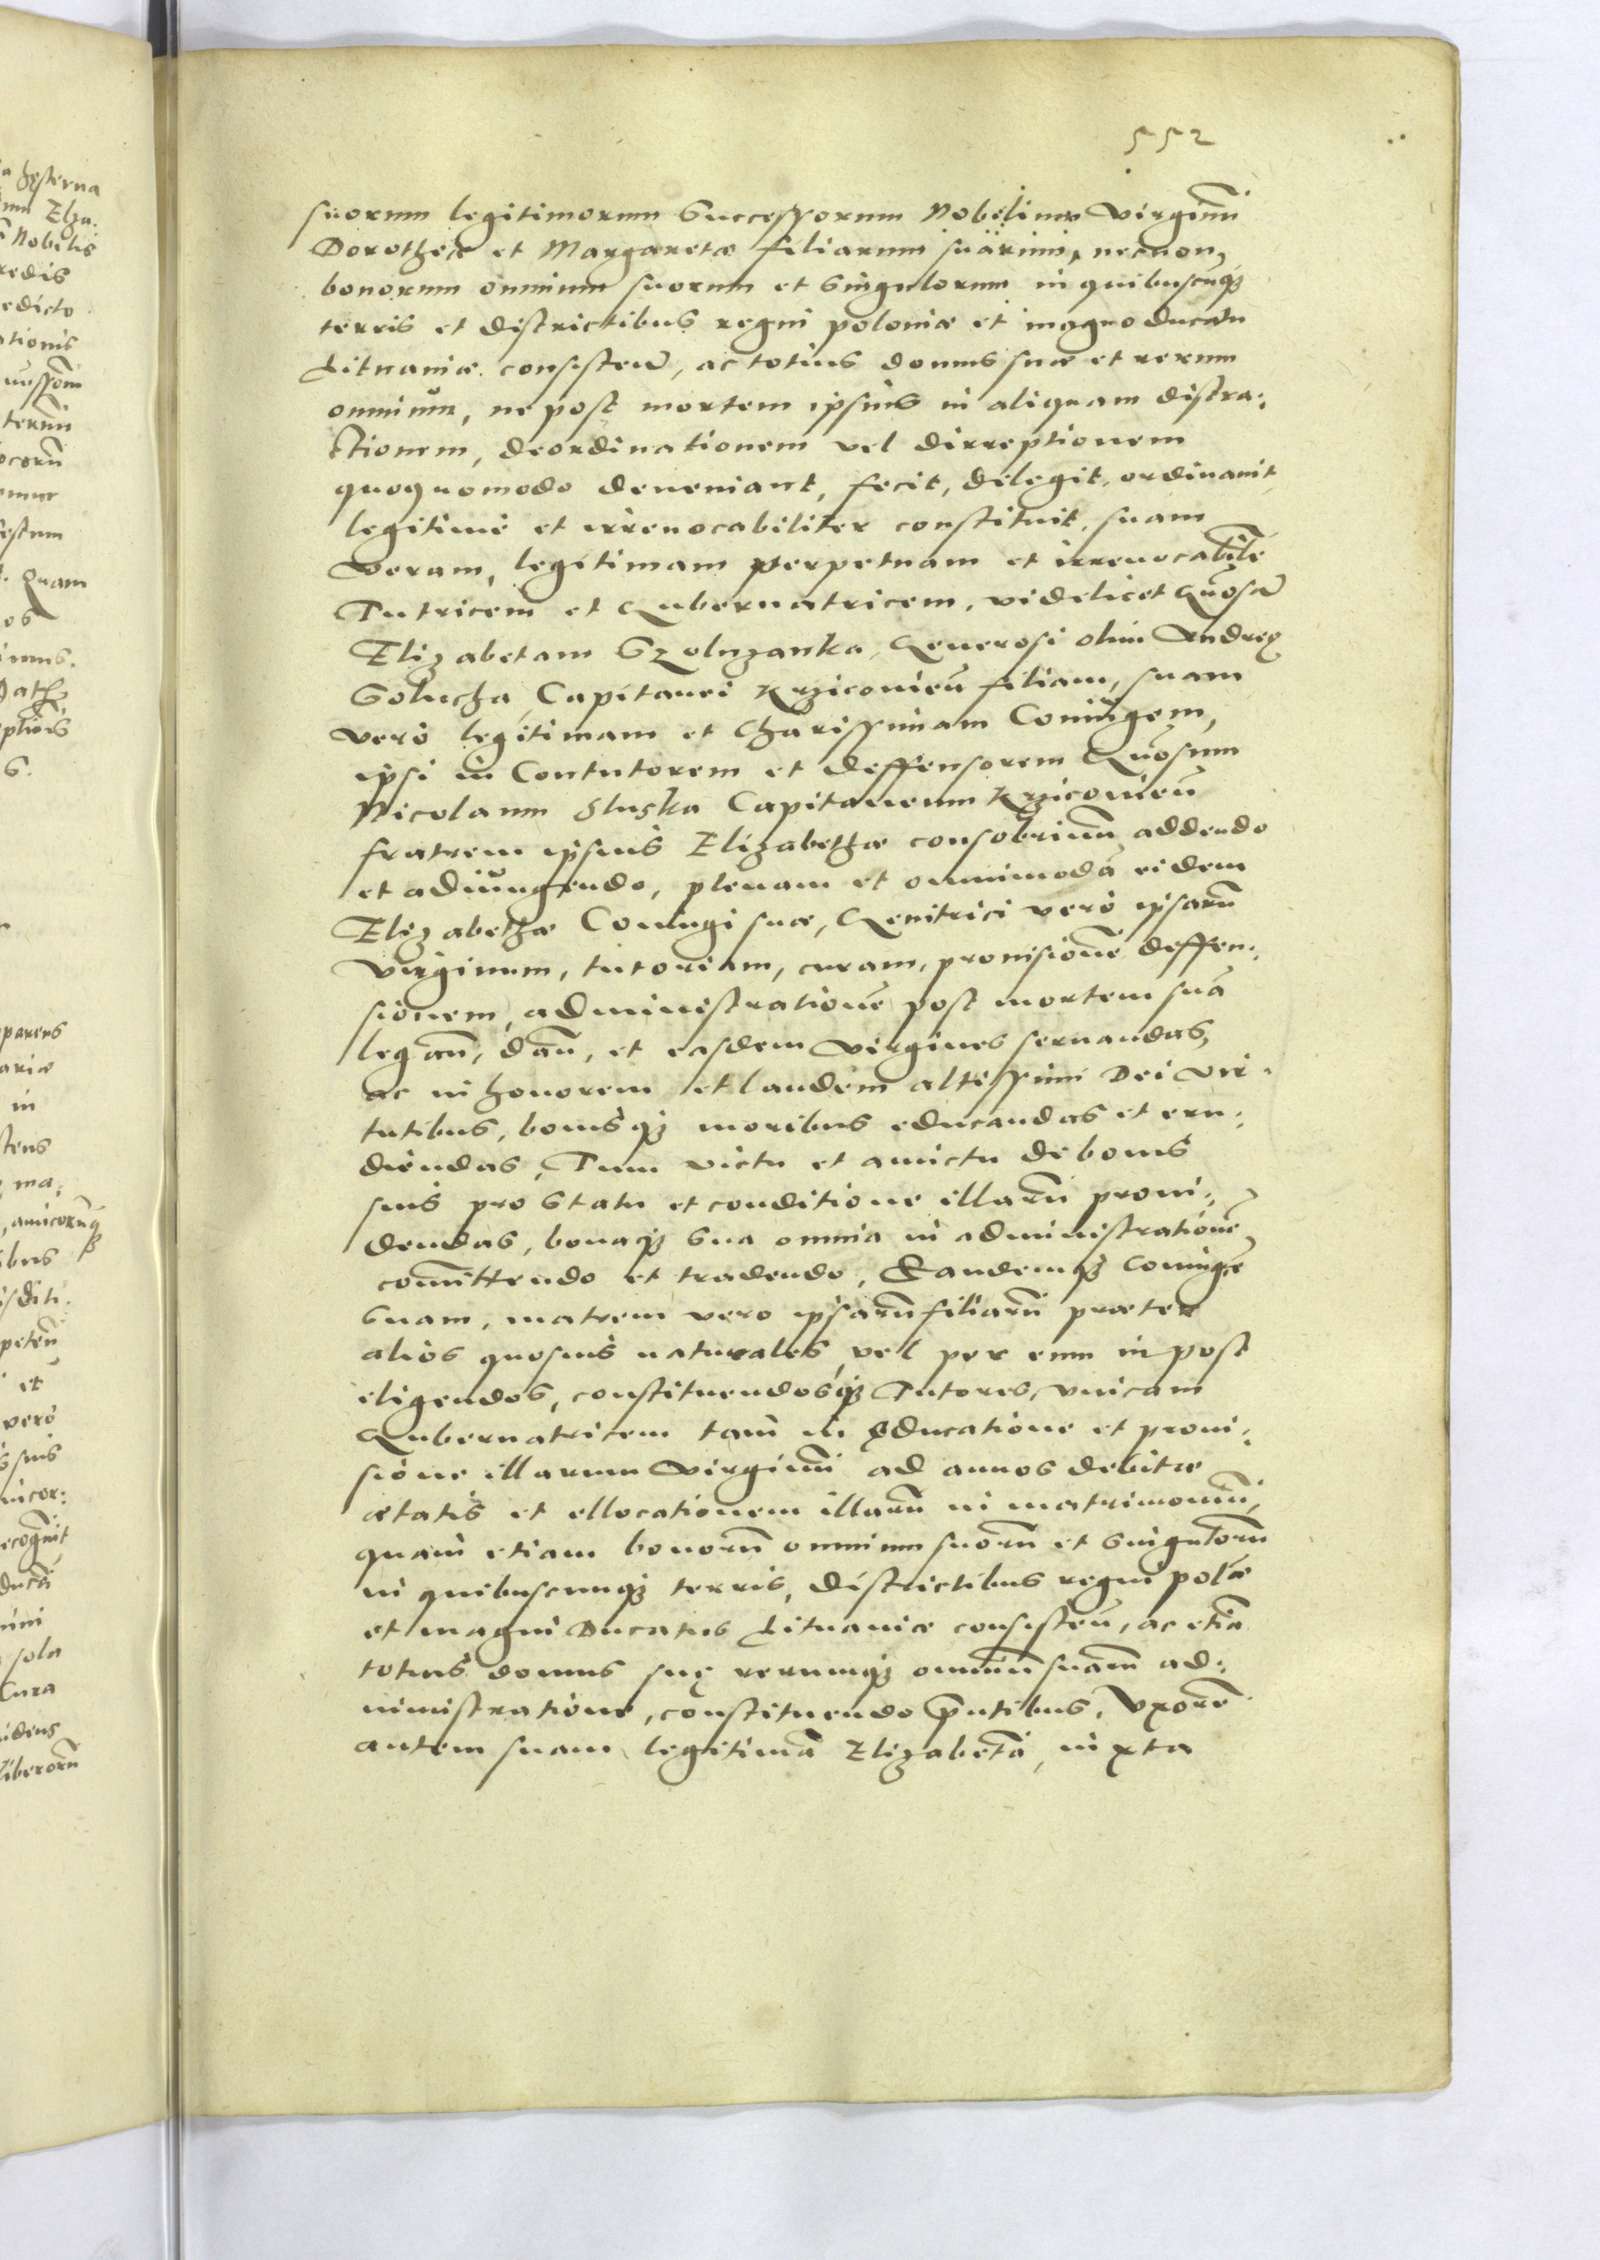 552
suorum legitimorum Successorum Nobilium Virginũ
Dorotheæ et Margaretæ filiarum suarum, necnon
bonorum omnium suorum et Singulorum in quibuscũq3
terris et districtibus regni poloniæ et magno ducatu
Lituaniæ consisteñ, ac totius domus suæ et rerum
omnium, ne post mortem ipsius in aliquam distra-
ctionem, deordinationem vel dirreptionem
quoquomodo deueniant, fecit, delegit, ordinauit
legitimè et irreuocabiliter constituit, suam
veram, legitimam perpetuam et irreuocabilẽ
Tutricem et Gubernatricem, videlicet Gñosã
Elizabetam Gzoluzanka, Generosi olim Andreę
Golucha, Capitanei Krziconieñ filiam, suam
verò legitimam et Charissimam Coniugem,
ipsi in Contutorem et deffensorem Gñosum
Nicolaum Sluska Capitaneum Krziconieñ
fratrem ipsius Elizabethæ consobrinũ addendo
et adiungendo, plenam et omnimodã eidem
Elizabethæ Coniugi suæ, Genitrici verò ipsarũ
virginum, tutoriam, curam, prouisionẽ deffen-
sionem, administrationẽ post mortem suã
legañ, dañ, et easdem virgines seruandas,
ac in honorem et laudem altissimi Dei vir-
tutibus, bonisq3 moribus educandas et eru-
diendas, Tum victu et amictu de bonis
suis pro statu et conditione illarũ proui-
dendas, bonaq3 sua omnia in administrationẽ
com̃ittendo et tradendo, Eandemq3 Coniugẽ
suam, matrem vero ipsarũ filiarũ præter
aliòs quosuis naturales, vel per eum in post
eligendos, constituendosq3 Tutores, vnicam
Gubernatricem tam in ęducatione et proui-
sione illarum virginũ ad annos debitæ
ætatis et ellocationem illarũ in matrimoniũ,
quam etiam bonorũ omnium suorũ et singulorũ
in quibuscunq3 terris, districtibus regni polæ
et magni Ducatus Lituaniæ consisteñ, ac etiã
totius domus suę rerumq3 omniũ suarũ ad-
ministratione, constituendo p̃ntibus, Vxorẽ
autem suam legitimã Elizabetã, iuxta